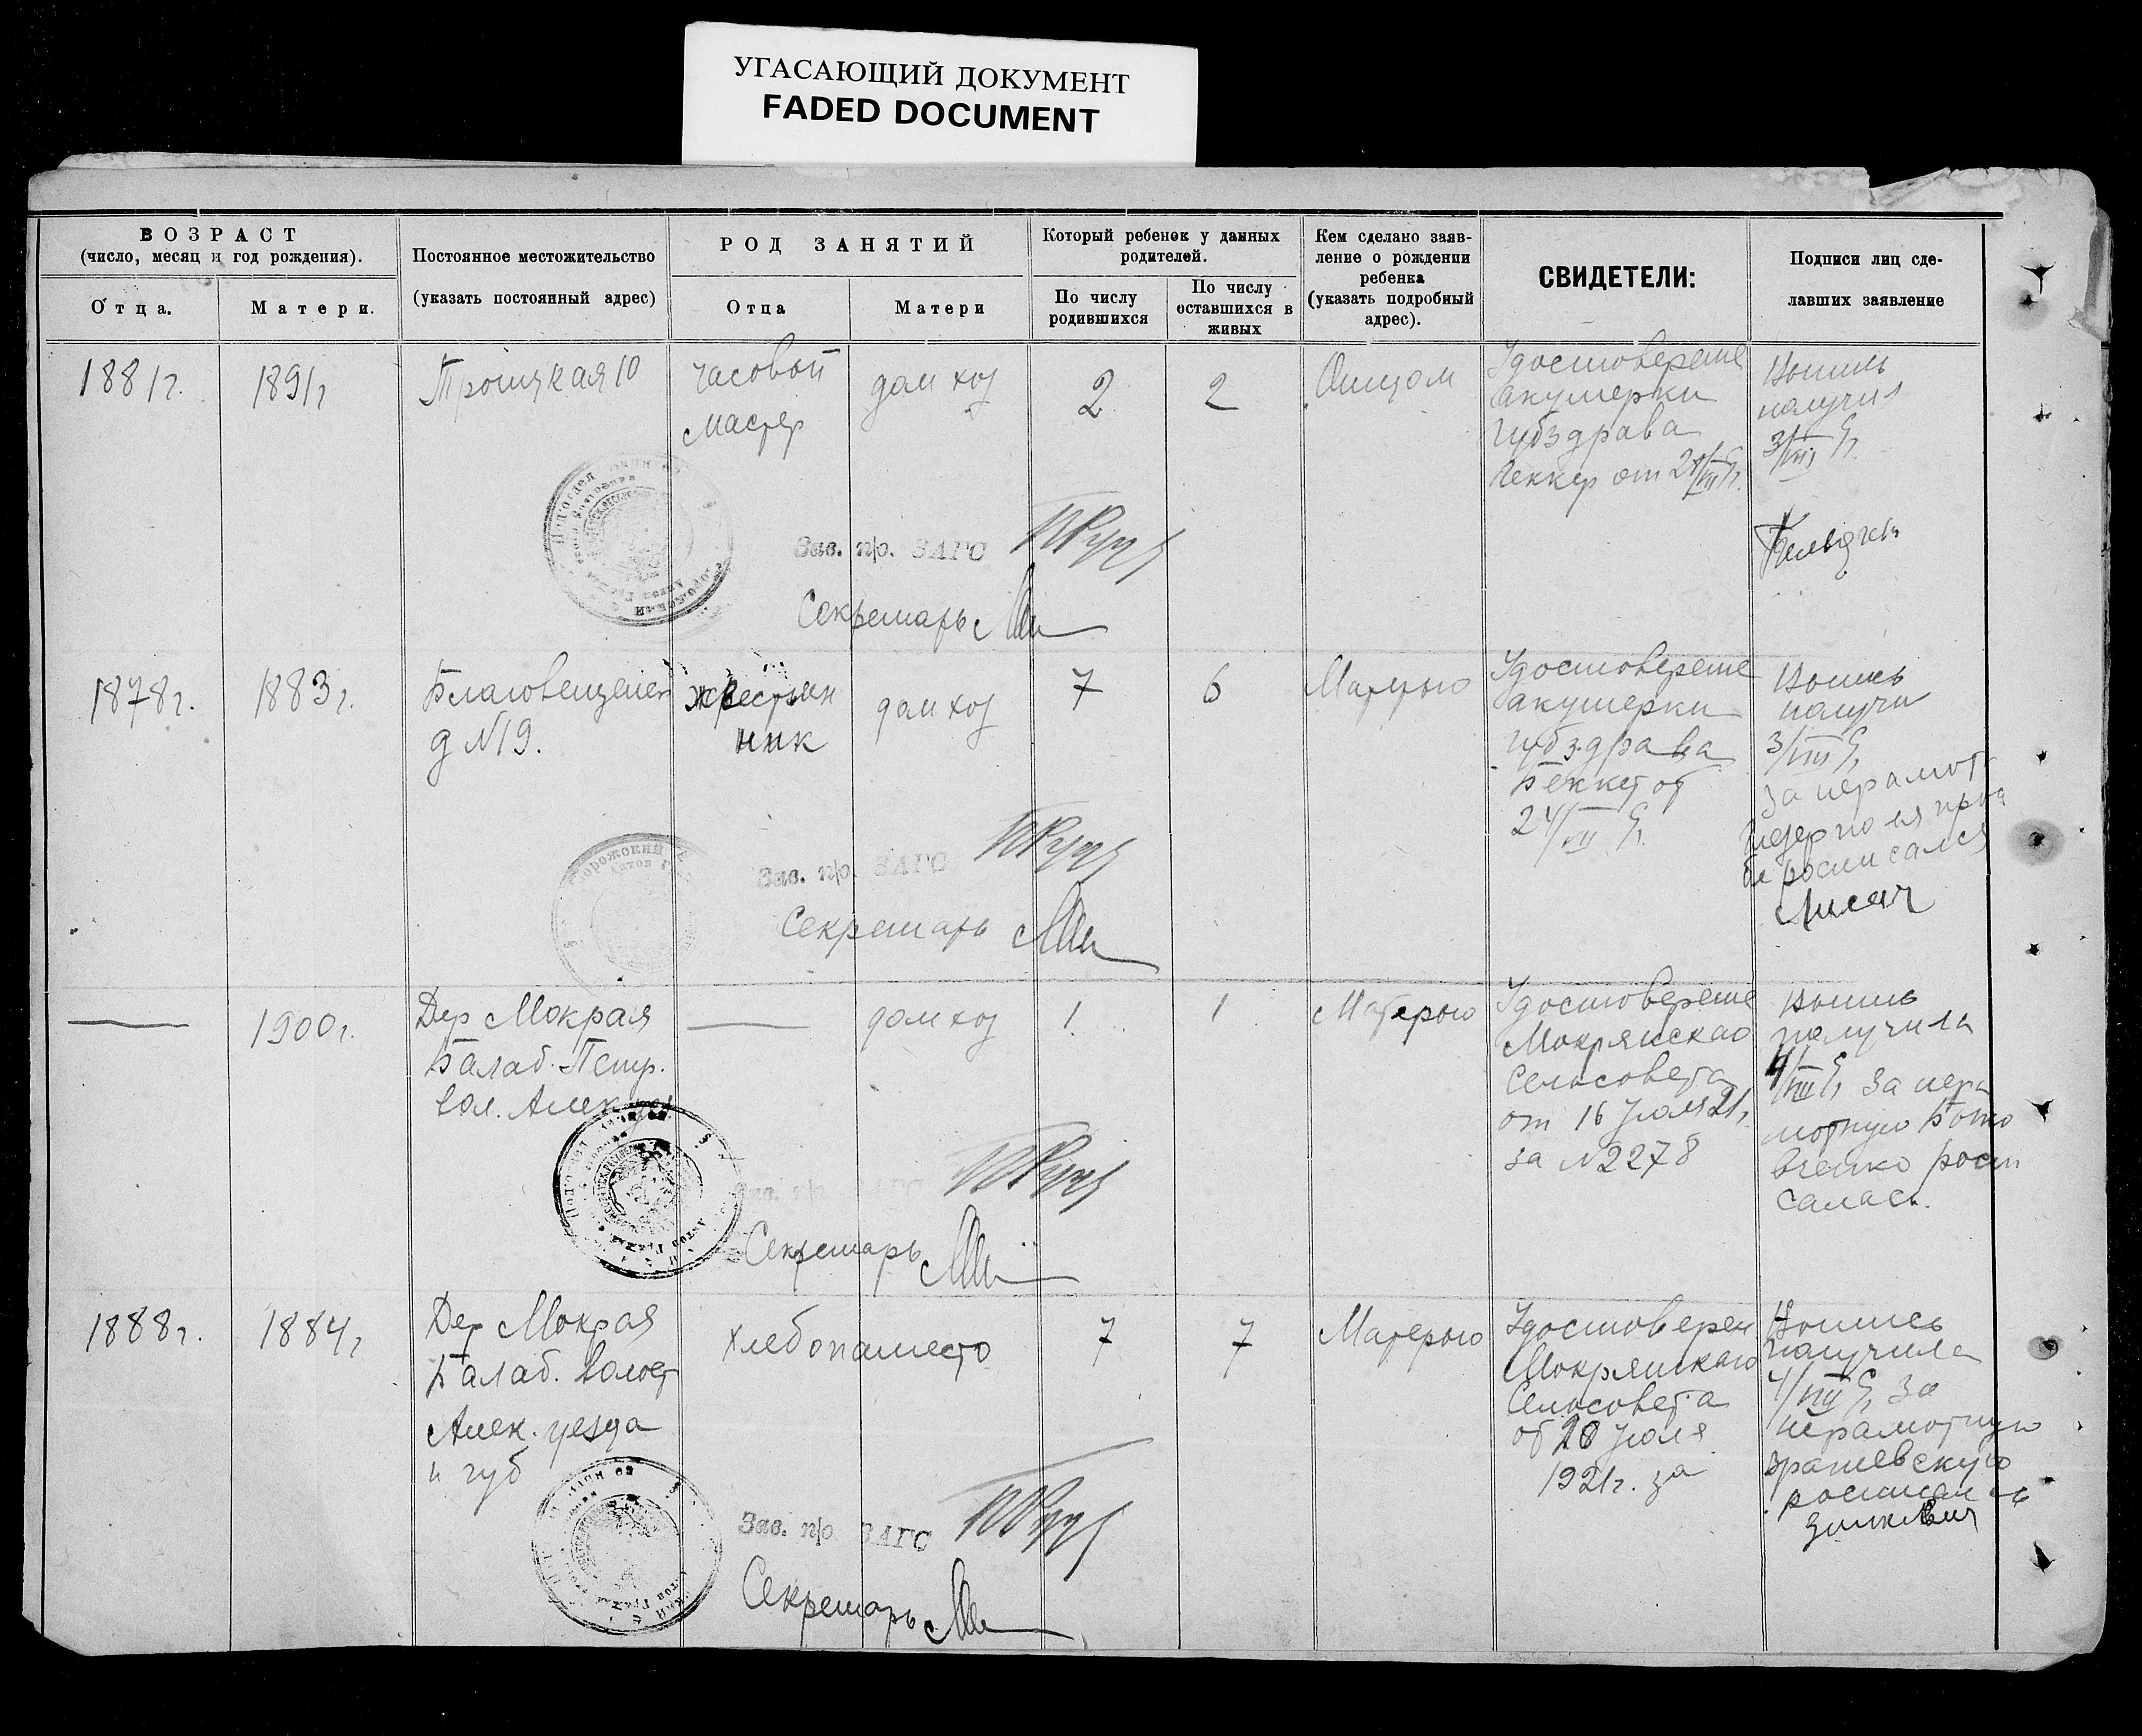 УГАСАЮЩИЙ ДОКУМЕНТ
FADED DOCUMENT
ВОЗРАСТ
(число, месяц и год рождения).
Отца.
Матери.
Постоянное местожительство
(указать постоянный адрес)
РОД ЗАНЯТИЙ
Отца
Матери
Который ребенок у данных
родителей.
По числу
родившихся
По числу
оставшихся в
живых
Кем сделано заяв-
ление о рождении
ребенка
(указать подробный
адрес).
СВИДЕТЕЛИ:
Подписи лиц сде-
лавших заявление
1881г.
1891г
Троицкая 10
Часовой
мастер
дом хоз
2
2
Отцом
Удостоверение
акушерки
Губздрава
от
Выпись
получил
3/VIII
Зав. п/о. ЗАГС
Секретарь
1878г.
1883г.
Благовещенск
д N19.
дом хоз
7
6
Матерью
Удостоверение
акушерки
губздрава
от
24/VII
Выпись
получи
3/VIII
за
росписался
Зав. п/о. ЗАГС
Секретарь
1900г.
Дер Мокрая
Балаб. Петр.
вол. Алек
дом хоз
1
1
Матерью
Удостоверение
Мокрянскаго
Сельсовета
от 16 Июля 21г.
за N2278
Выпись
получила
4/VIII за негра
мотную
роспи
салась.
Зав. п/о. ЗАГС
Секретарь
1888г.
1884г
Дер Мокрая
Балаб. волост
Алек. уезда
и губ
Хлебопашество
7
7
Матерью
Удостоверен
Мокрянскаго
Сельсовета
от 20 Июля
1921г. за
Выпись
получила
4/VIII за
неграмотную
росписалась
Зав. п/о ЗАГС
Секретарь